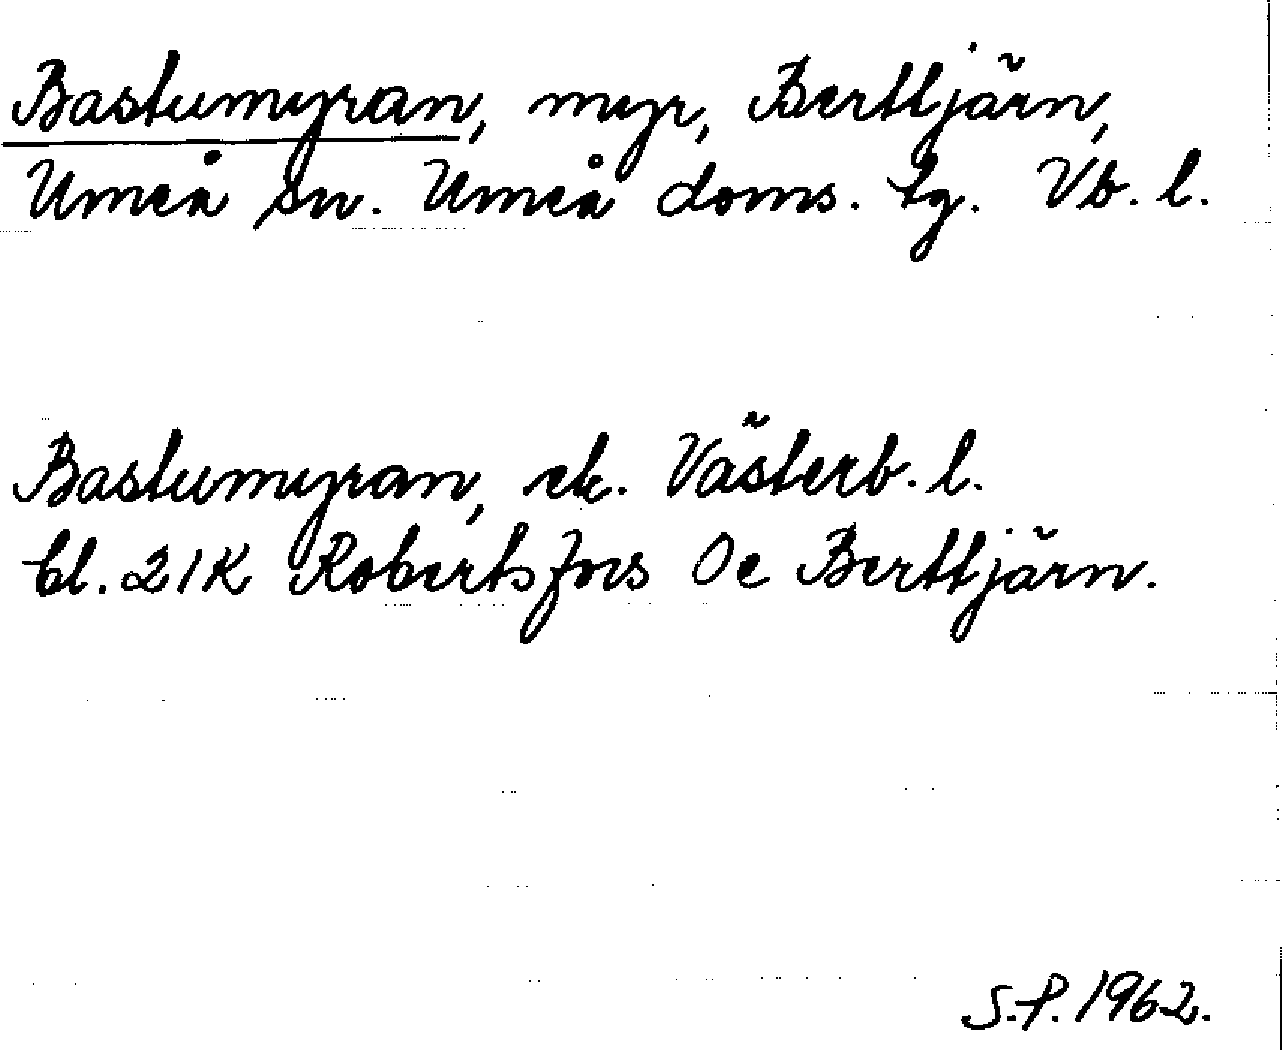 Bastumyran, myr, Berttjärn,
Umeå sn. Umeå doms. tg. Vb. l.
Bastumyran, ek. Västerb. l.
bl. 21K Robertsfors Oe Berttjärn.
S.P. 1962.